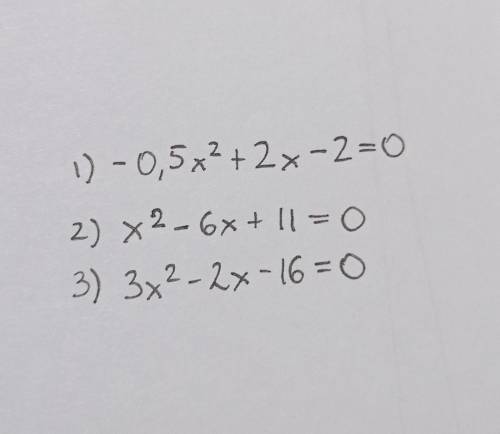 1) -0,5x² + 2x - 2 = 0
2) x² - 6x + 11 = 0
3) 3x² - 2x - 16 = 0